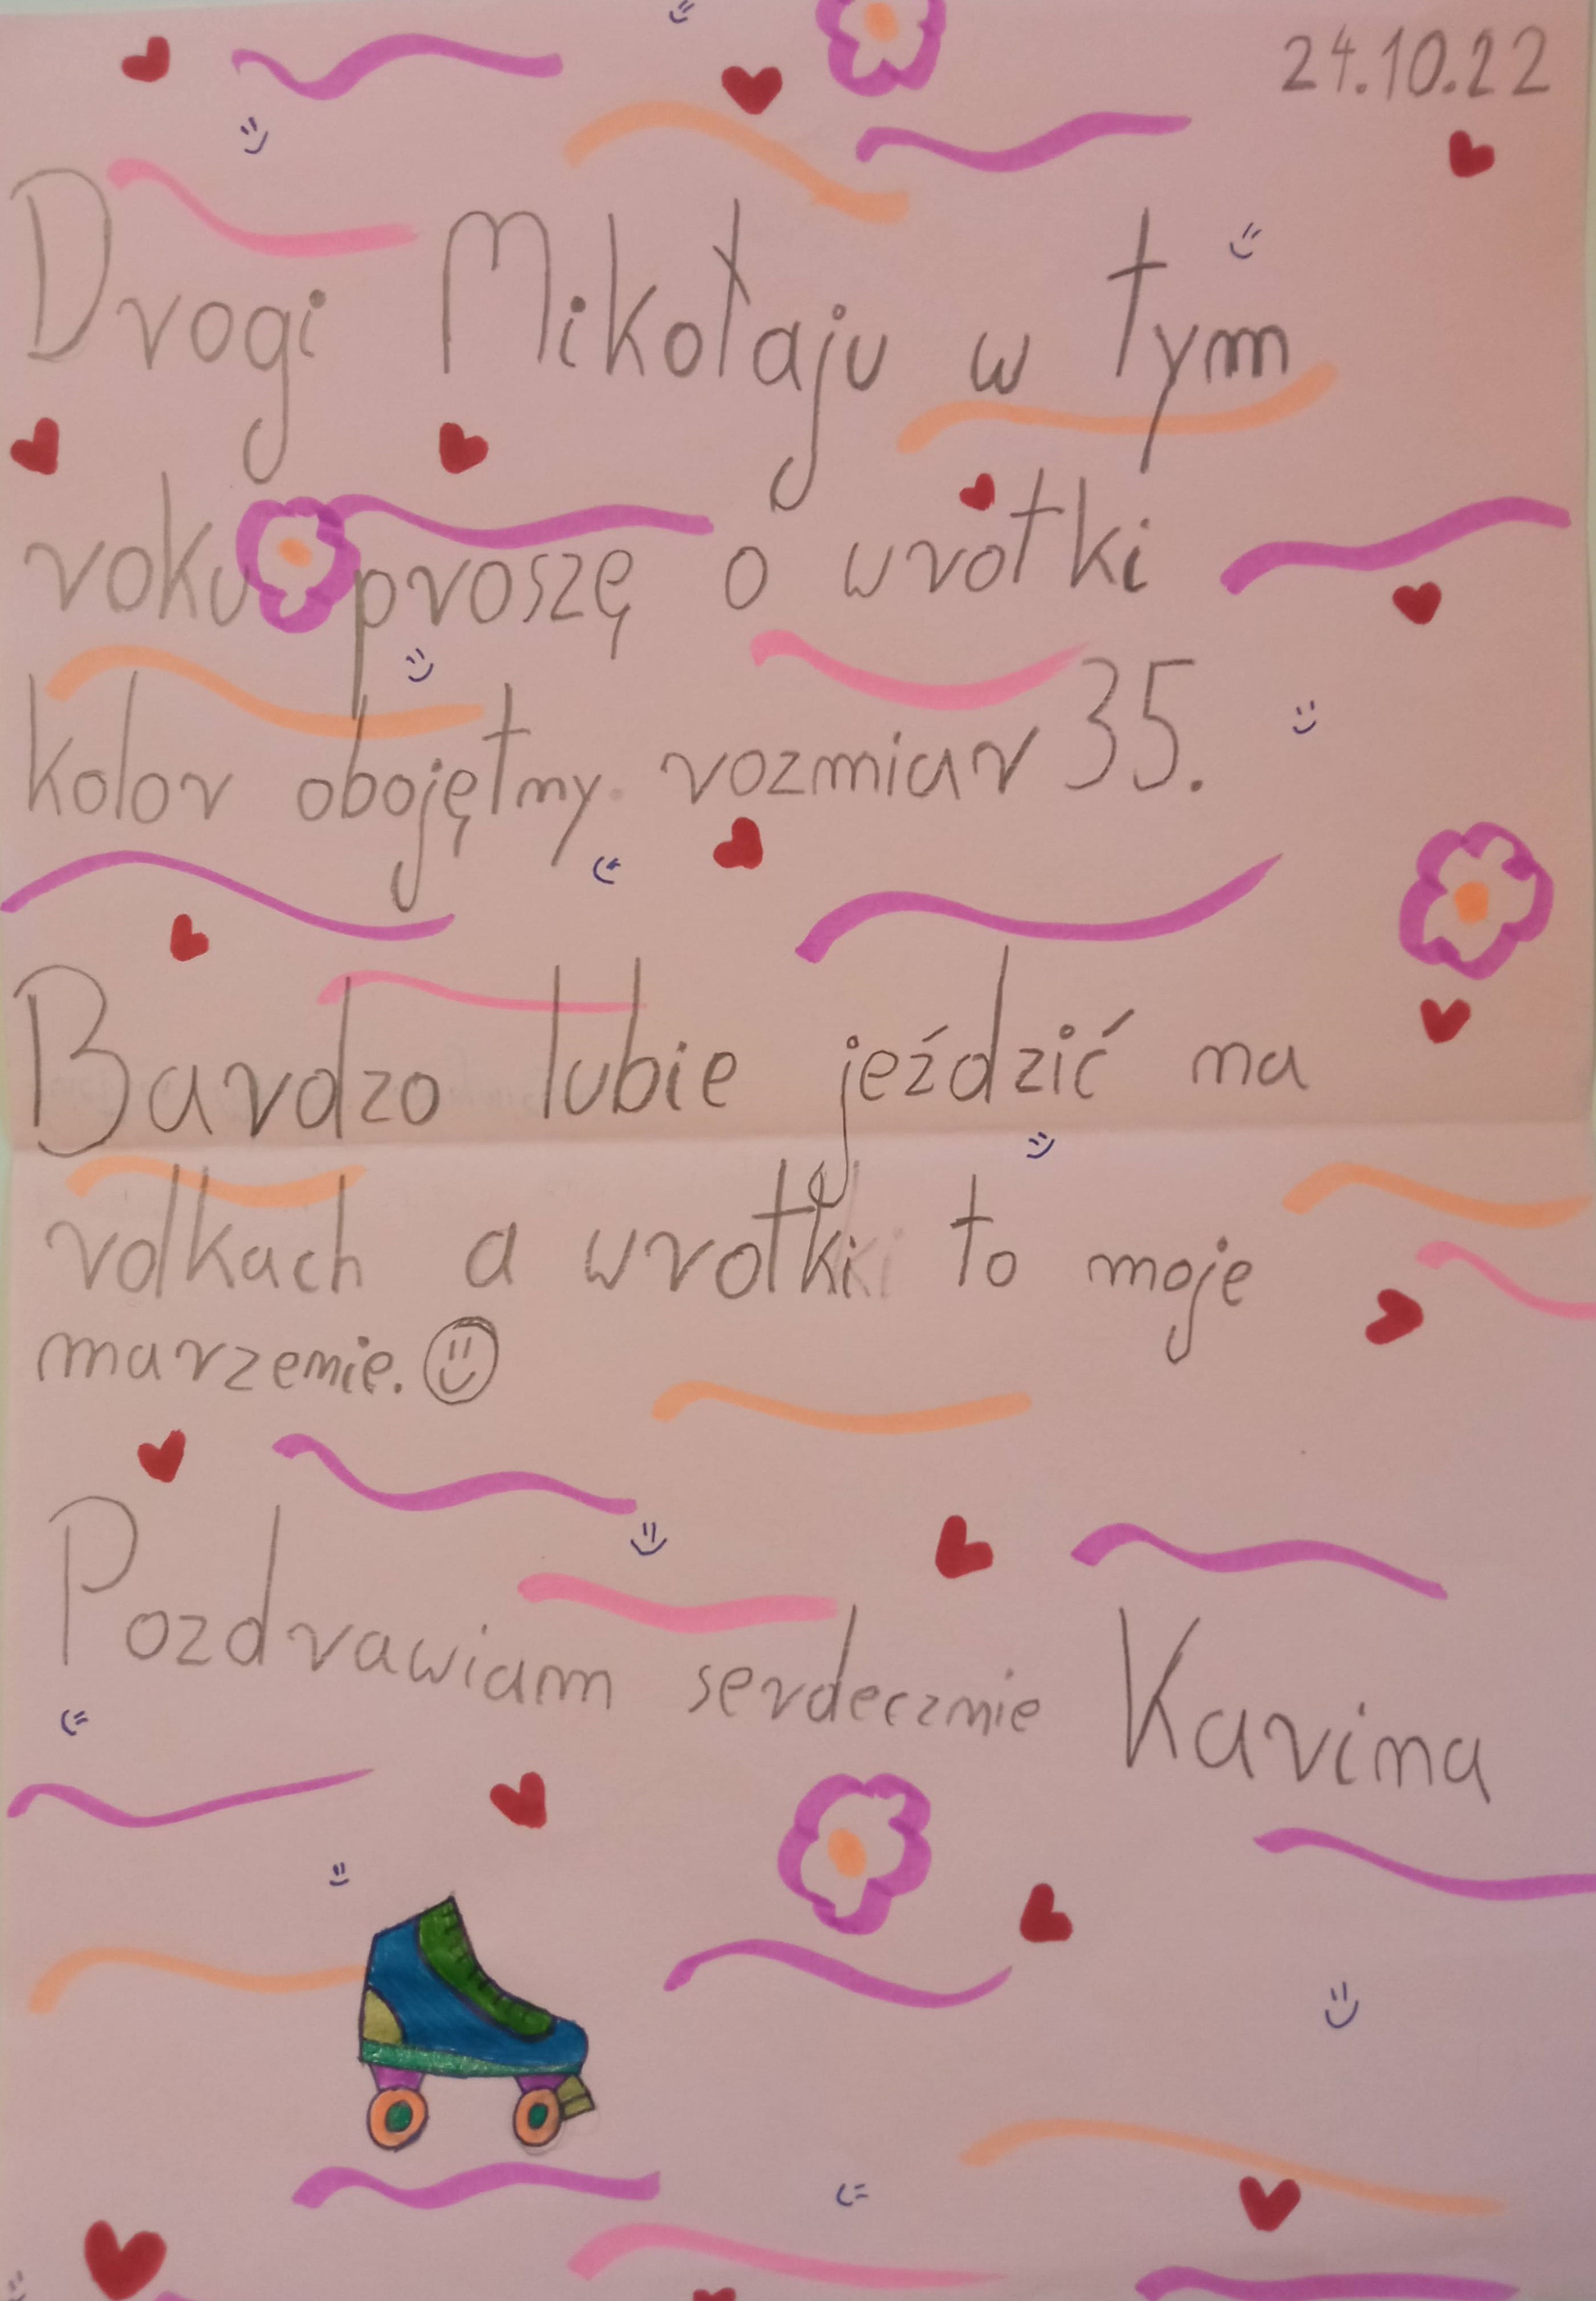 24.10.22
Drogi Mikołaju w tym
roku proszę o wrotki
kolor obojętny. rozmiar 35.
Bardzo lubie jeździć na
rolkach a wrotki to moje
marzenie.
Pozdrawiam serdecznie Karina